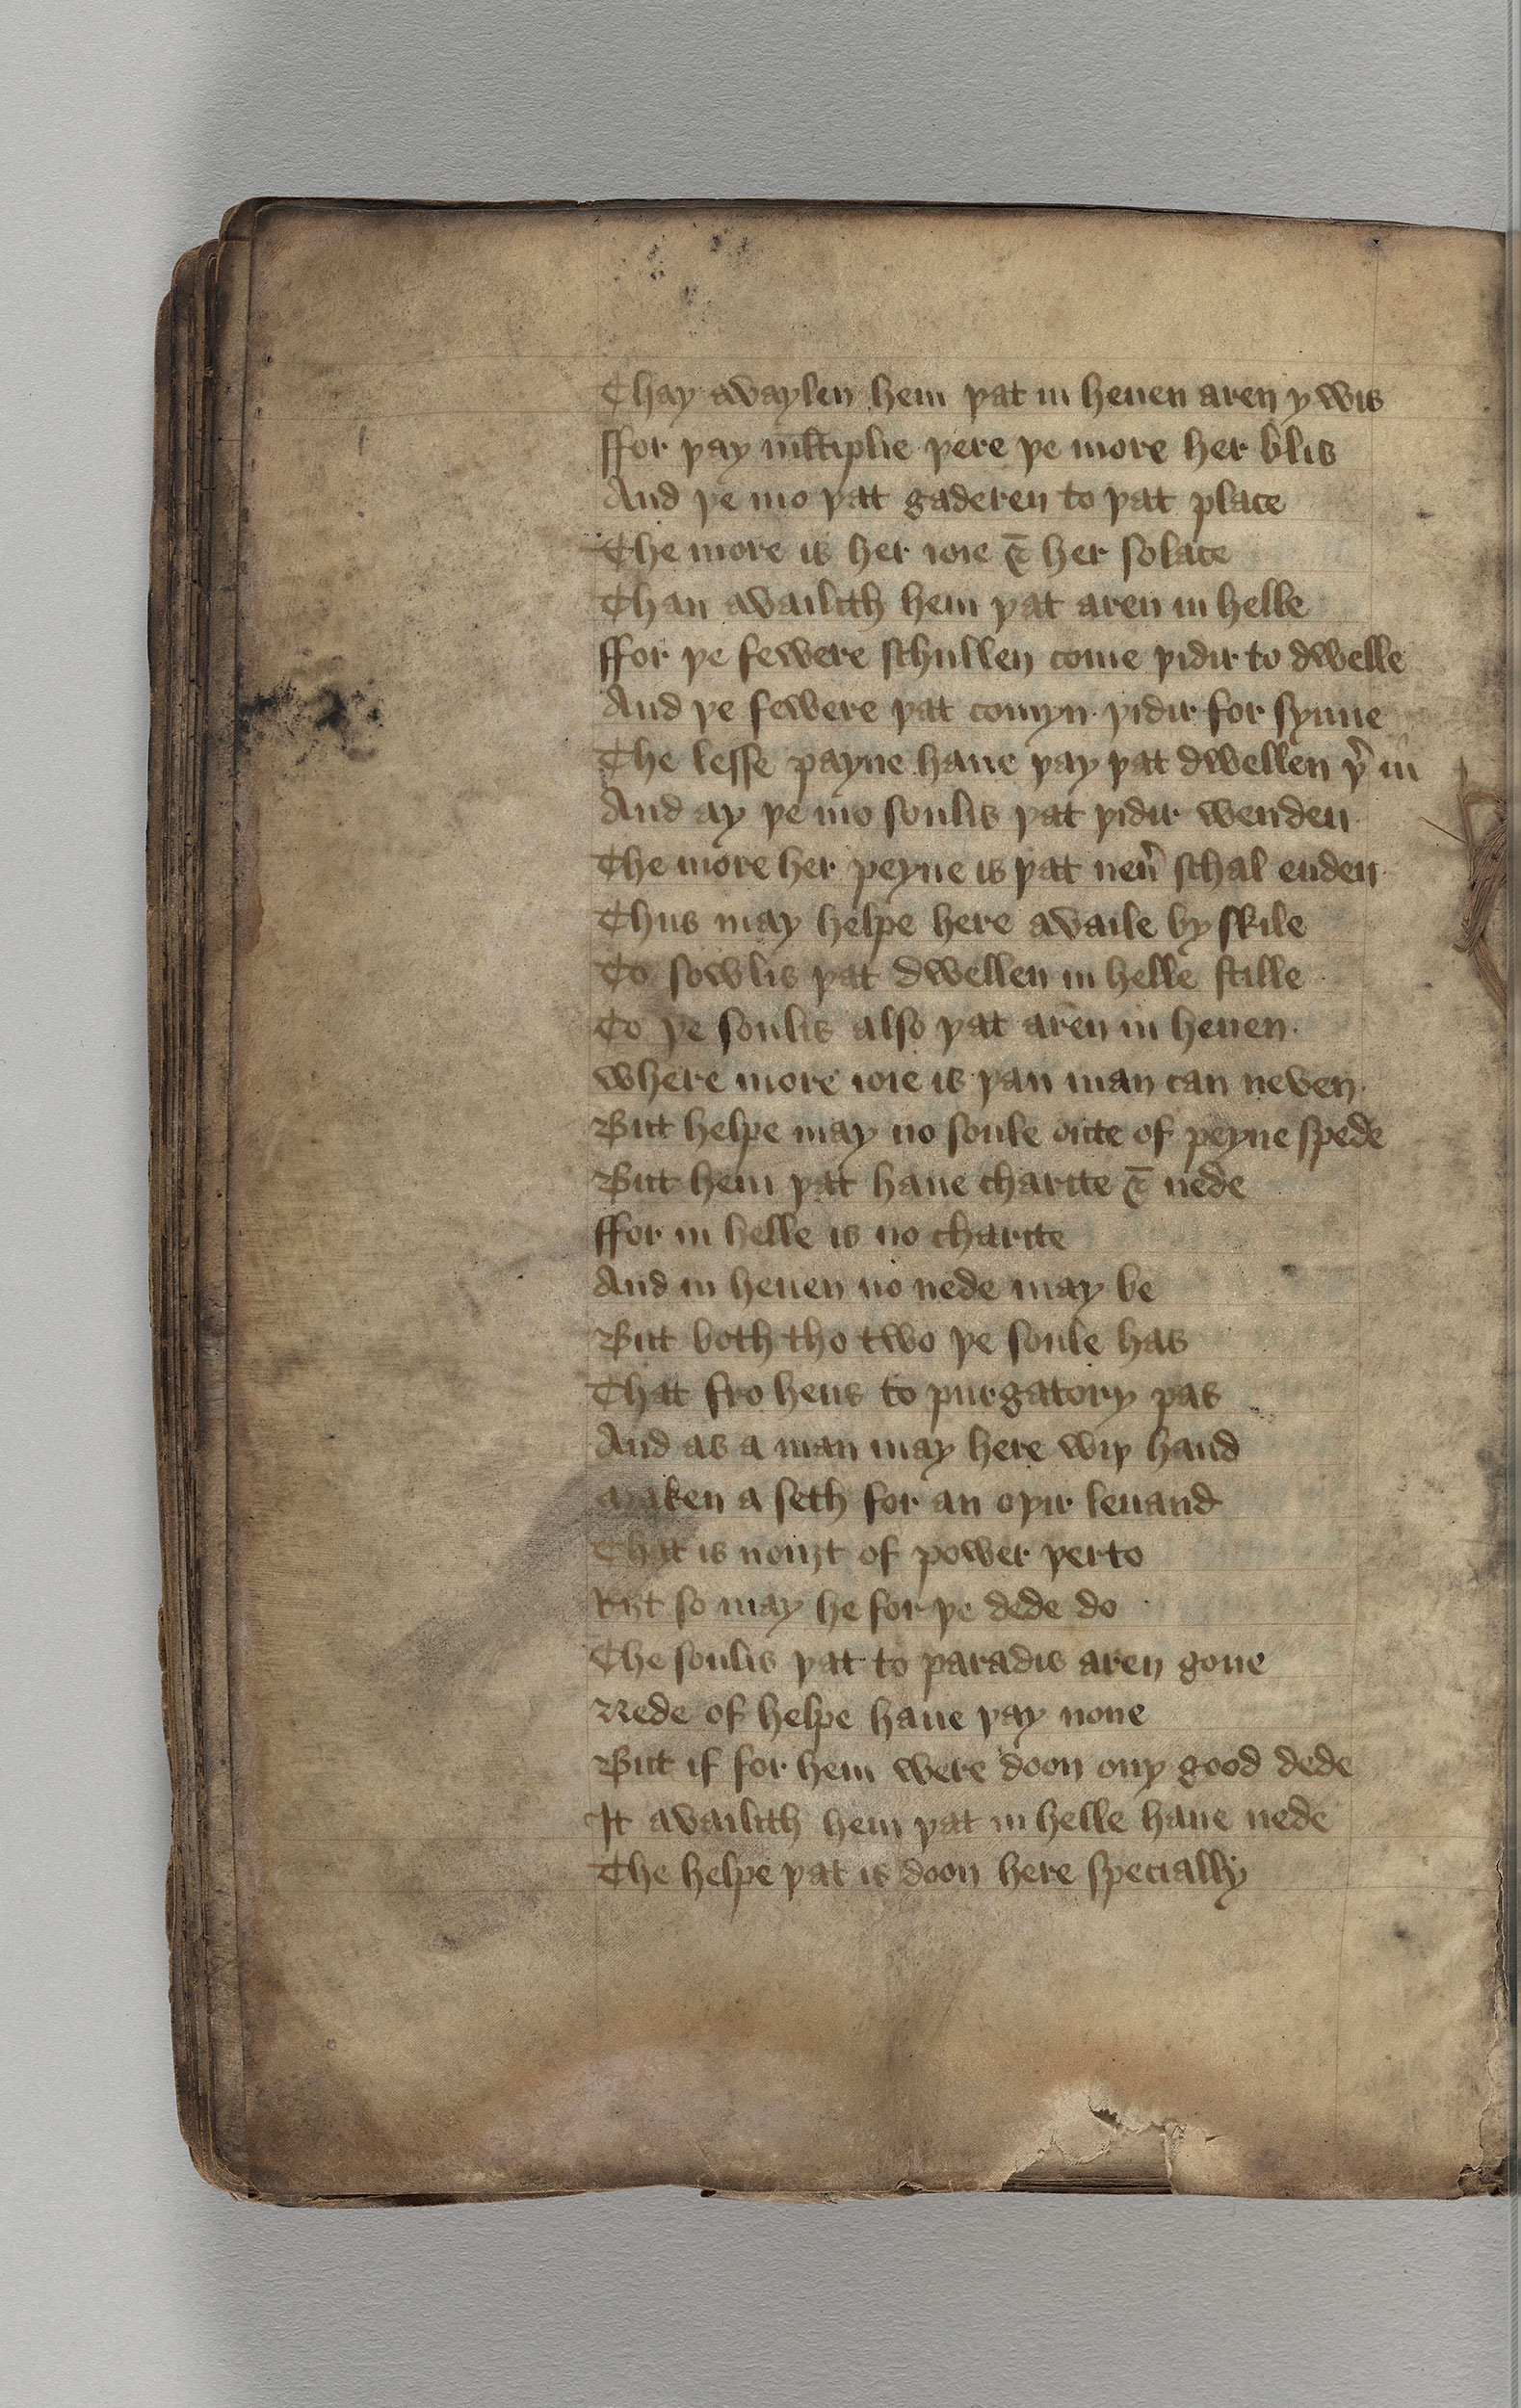 Thay awaylen hem þat in heuen aren y wis
ffor þay ml̄tiplie þere þe more her blis
And þe mo þat gaderen to þat place
The more is her ioie & her solace
Than availith hem þat aren in helle
ffor þe fewere schullen come þidir to dwelle
And þe fewere þat comyn þidir for synne
The lesse payne haue þay þat dwellen þ̉ in
And ay þe mo soulis þat þidir wenden
The more her peyne is þat neủ schal enden
Thus may helpe here availe by skile
To sowlis þat dwellen in helle stille
To þe soulis also þat aren in heuen
where more ioie is þan man can neven
But helpe may no soule oute of peyne spede
But hem þat haue charite & nede
ffor in helle is no charite
And in heuen no nede may be
But both tho two þe soule has
That fro hens to purgatory pas
And as a man may here wiþ hand
Maken a seth for an oþir leuand
That is nouȝt of power þerto
Riȝt so may he for þe dede do
The soulis þat to paradis aren gone
Nede of helpe haue þay none
But if for hem were doon ony good dede
It availith hem þat in helle haue nede
The helpe þat is doon here specially